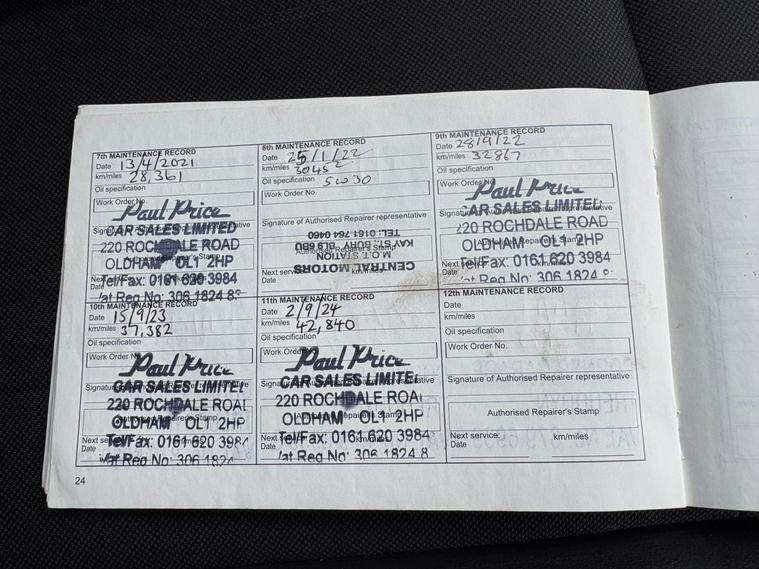 7th MAINTENANCE RECORD
Date 13/4/2021
km/miles 28,361
Oil specification
Work Order No.
Paul Price
CAR SALES LIMITED
220 ROCHDALE ROAD
OLDHAM OL1 2HP
Tel/Fax: 0161 620 3984
Vat Reg No: 306 1824
8th MAINTENANCE RECORD
Date 25/1/22
km/miles
Oil specification 5W30
Work Order No.
Signature of Authorised Repairer representative
Authorised Repairer's Stamp
CENTRAL MOTORS
M.O.T. STATION
KAY ST., BURY BL9 6BU
TEL: 0161 764 0460
Next service:
Date km/miles
9th MAINTENANCE RECORD
Date 28/9/22
km/miles 32867
Oil specification
Work Order No.
Paul Price
CAR SALES LIMITED
220 ROCHDALE ROAD
OLDHAM OL1 2HP
Tel/Fax: 0161 620 3984
Vat Reg No: 306 1824 8
10th MAINTENANCE RECORD
Date 15/9/23
km/miles 37,382
Oil specification
Work Order No.
Paul Price
CAR SALES LIMITE
220 ROCHDALE ROA
OLDHAM OL1 2HP
Tel/Fax: 0161 620 3984
Vat Reg No: 306 1824
Next service:
Date
11th MAINTENANCE RECORD
Date 2/9/24
km/miles 42,840
Oil specification
Work Order No.
Paul Price
CAR SALES LIMITE
220 ROCHDALE ROA
OLDHAM OL1 2HP
Tel/Fax: 0161 620 3984
Vat Reg No: 306 1824 8
12th MAINTENANCE RECORD
Date
km/miles
Oil specification
Work Order No.
Signature of Authorised Repairer representative
Authorised Repairer's Stamp
Next service: km/miles
Date
24